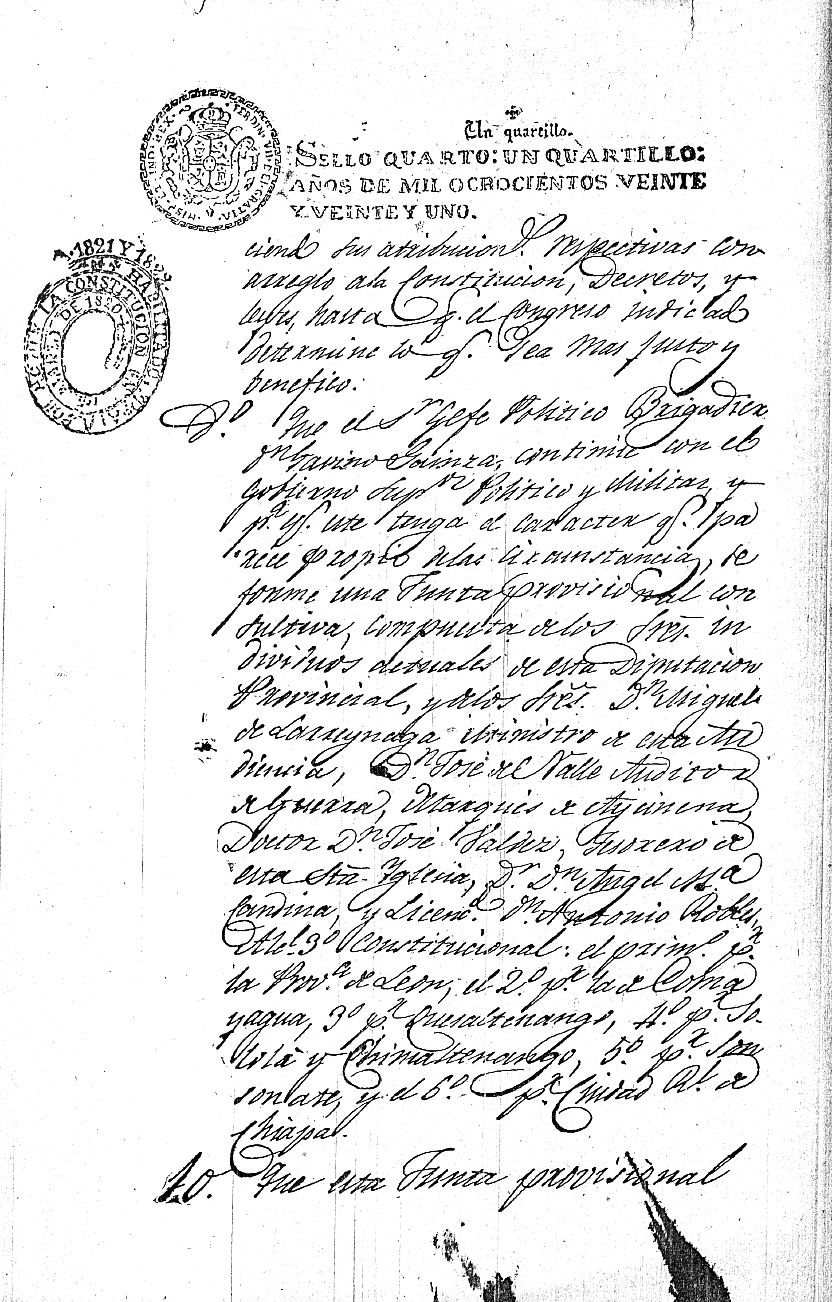 Un quartillo.
SELLO QUARTO: UN QUARTILLO:
AÑOS DE MIL OCHOCIENTOS VEINTE
Y VEINTE Y UNO.
A. 1821 Y 1822
HABILITADO POR LA CONSTITUCION EN
DE MARZO DE 1820
FERDIN. VII DEI GRATIA
HISP. ET IND. REX
ciend sus atribucion.s respectivas con
arreglo ala Constitucion, Decretos, y
leyes, hasta q.e el Congreso indicad
determine lo q.e sea mas justo y
benefico:
9.º Que el S.r Gefe Politico Brigadier
D.n Gavino Gainza, continue con el
Gobierno Sup.or Politico y Militar, y
p.a q.e este tenga el caracter q.e pa
rece propio delas circunstancias, se
forme una Junta provisional con
sultiva, compuesta delos Sres. in
dividuos actuales de esta Diputacion
Provincial, y delos Sres. D.n Miguel
de Larreynaga Ministro de esta Au
diencia, D.n José del Valle Auditor
de Guerra, Marques de Aycinena,
Doctor D.n José Valdez, Tesorero de
esta Sta. Yglesia, D.r D.n Angel M.a
Candina, y Licenc.d D.n Antonio Robles,
Alc.l 3.º Constitucional: el prim.º p.r
la Prov.a de Leon, el 2.º p.r la de Coma
yagua, 3.º p.r Quesaltenango, 4.º p.r So-
lolá y Chimaltenango, 5.º p.r Son
sonate, y el 6.º p.r Ciudad R.l de
Chiapa.
10. Que esta Junta provisional